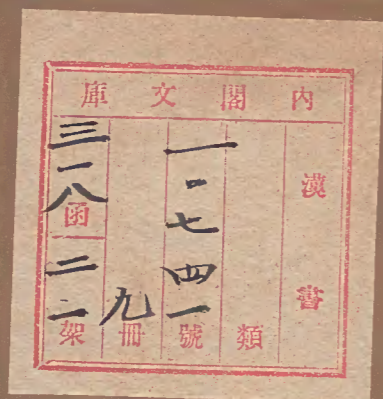 内閣文庫
漢書
類
一〇七四一號
九冊
三一八函
二一架